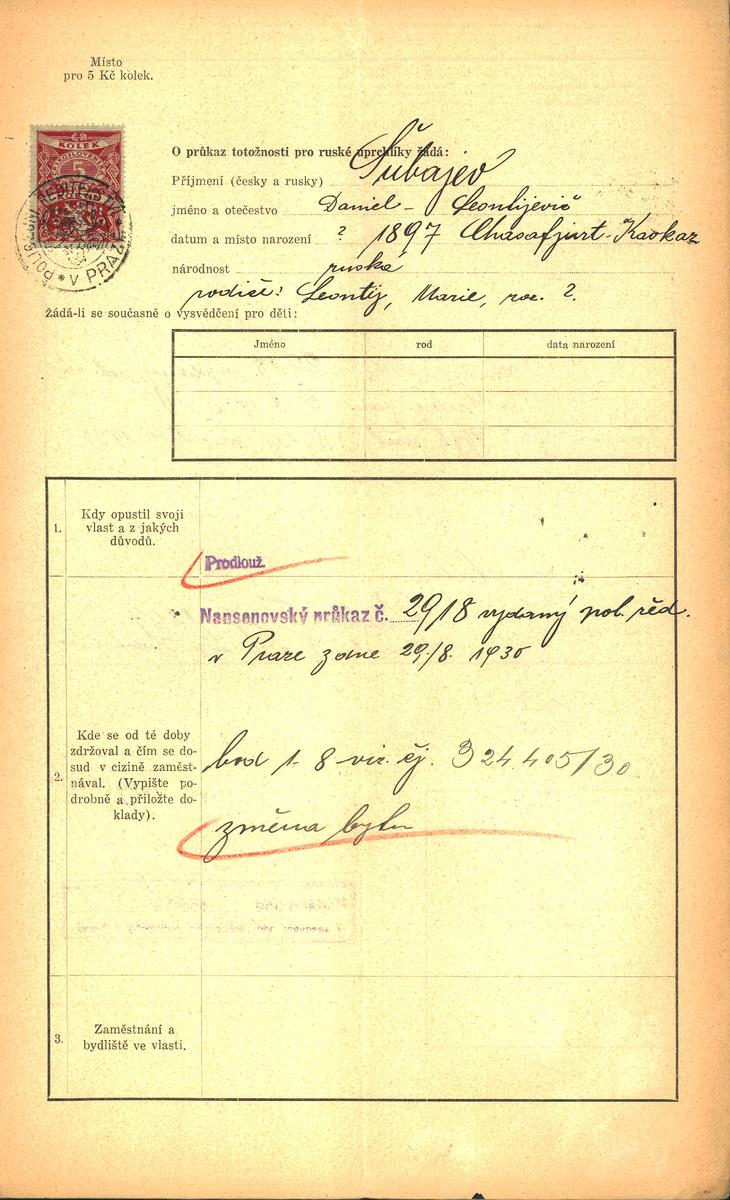 Místo
pro 5 Kč kolek.
KOLEK
5
V PRAZE
O průkaz totožnosti pro ruské uprchlíky žádá:
Příjmení (česky a rusky) Šubajev
jméno a otečestvo Daniel - Leontijevič
datum a místo narození ? 1897 Chasafjurt-Kavkaz
národnost ruská
rodiče: Leontij, Marie, roz. ?
Žádá-li se současně o vysvědčení pro děti:
Jméno rod data narození
1. Kdy opustil svoji
vlast a z jakých
důvodů.
Prodlouž.
Nansenovský průkaz č. 2918 vydaný pol. řed.
v Praze zdne 29./8. 1930
2. Kde se od té doby
zdržoval a čím se do-
sud v cizině zaměst-
nával. (Vypište po-
drobně a přiložte do-
klady).
bod 1-8 viz. čj. 324405/30
změna bytu
3. Zaměstnání a
bydliště ve vlasti.